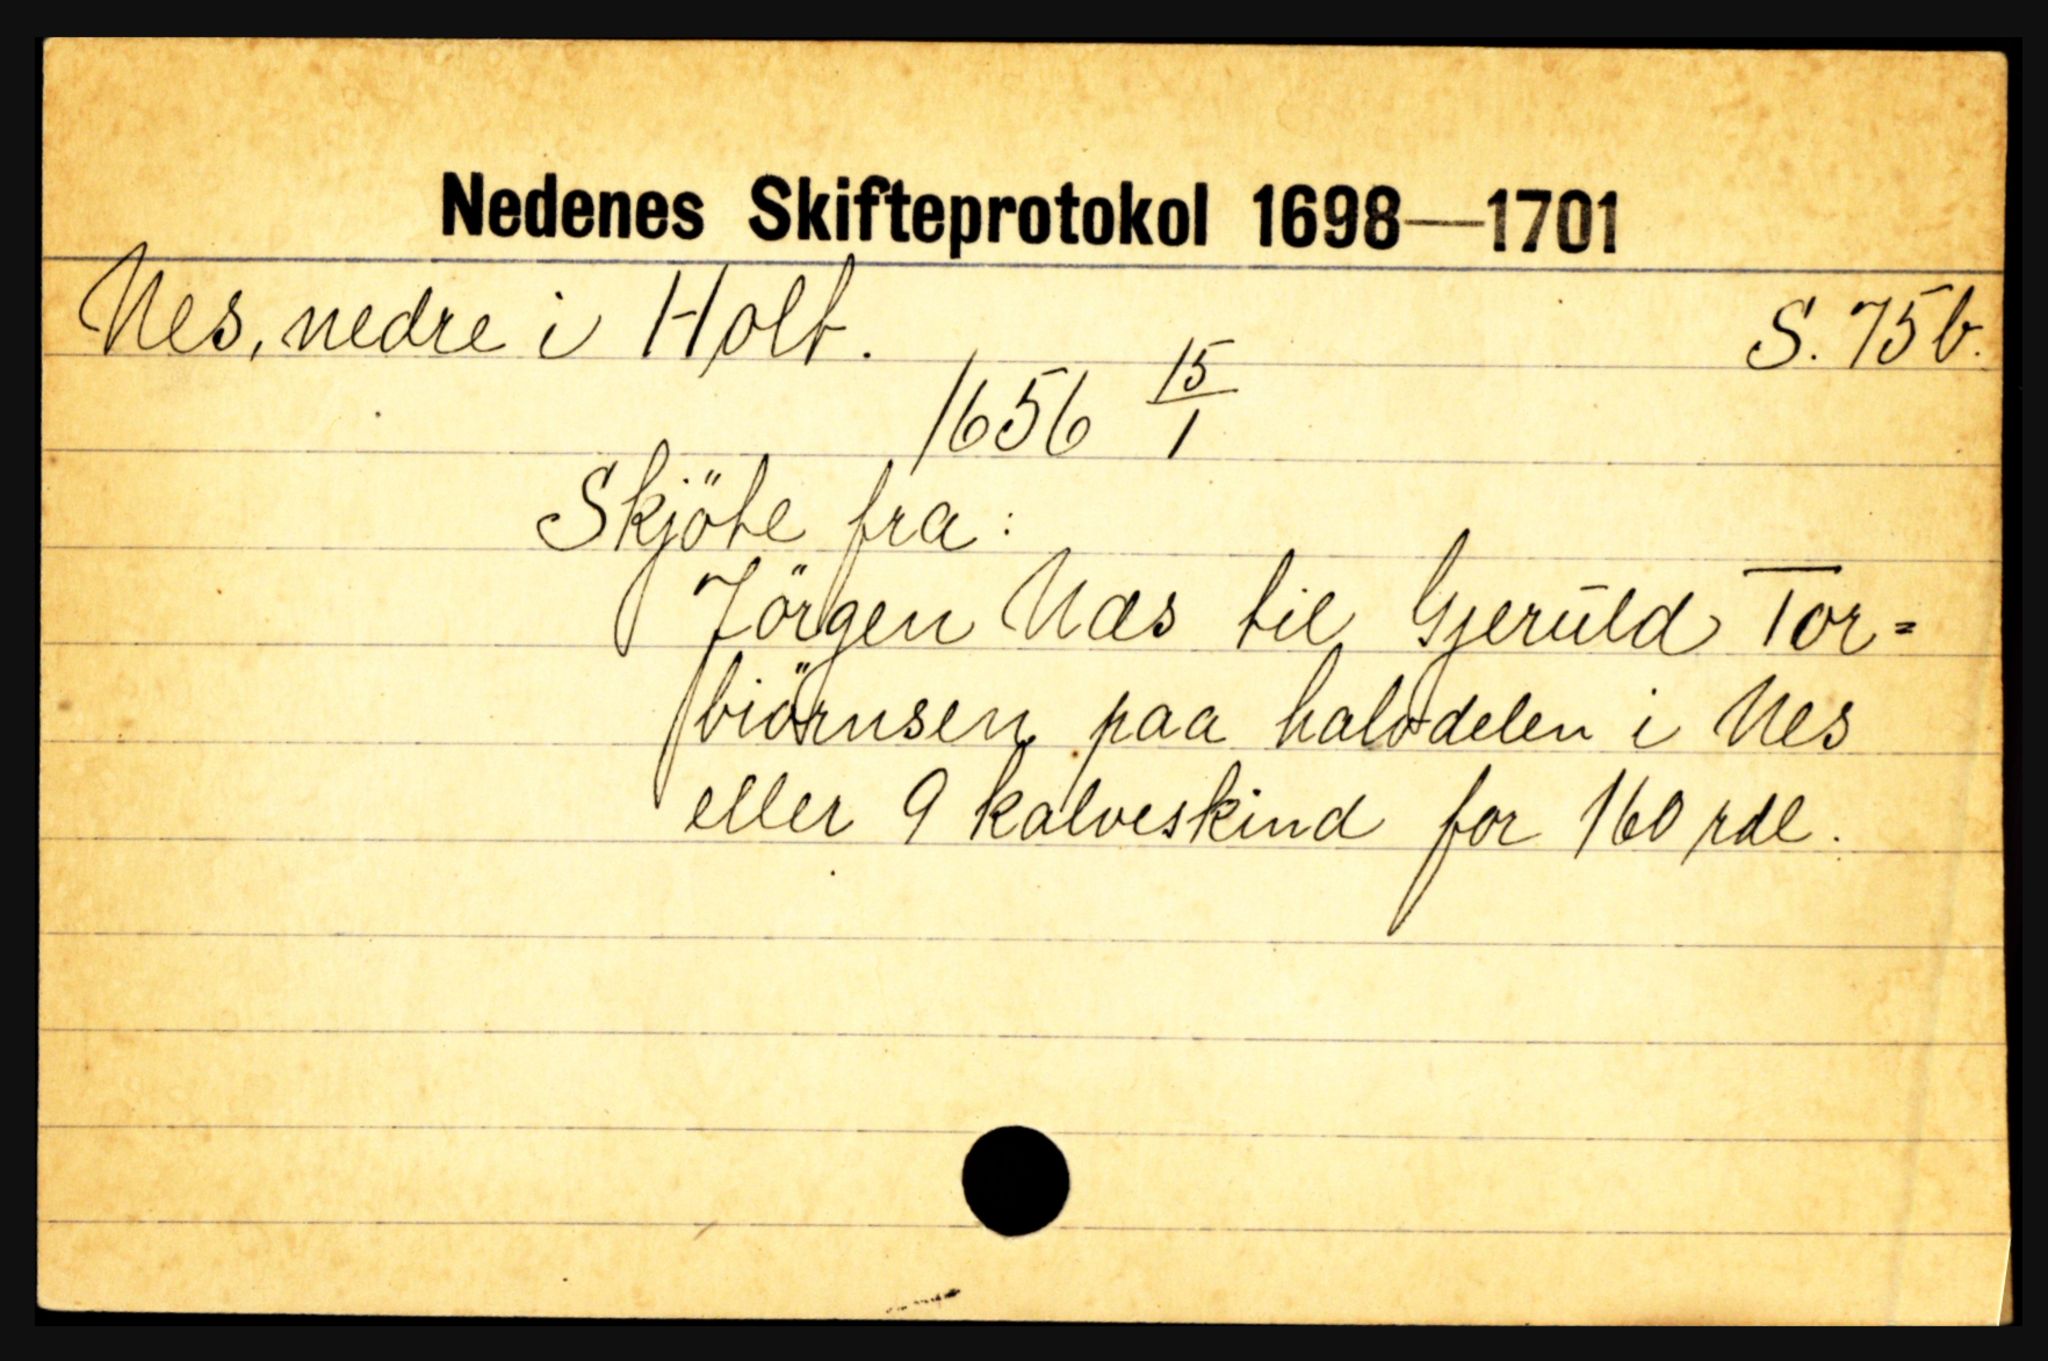 Nedenes Skifteprotokol 1698—1701
Nes, nedre i Holt. S. 75b.
1656 15/1
Skjöte fra:
Jörgen Næs til Gjeruld Tor=
biörnsen paa halvdelen i Nes
eller 9 kalveskind for 160 rdl.